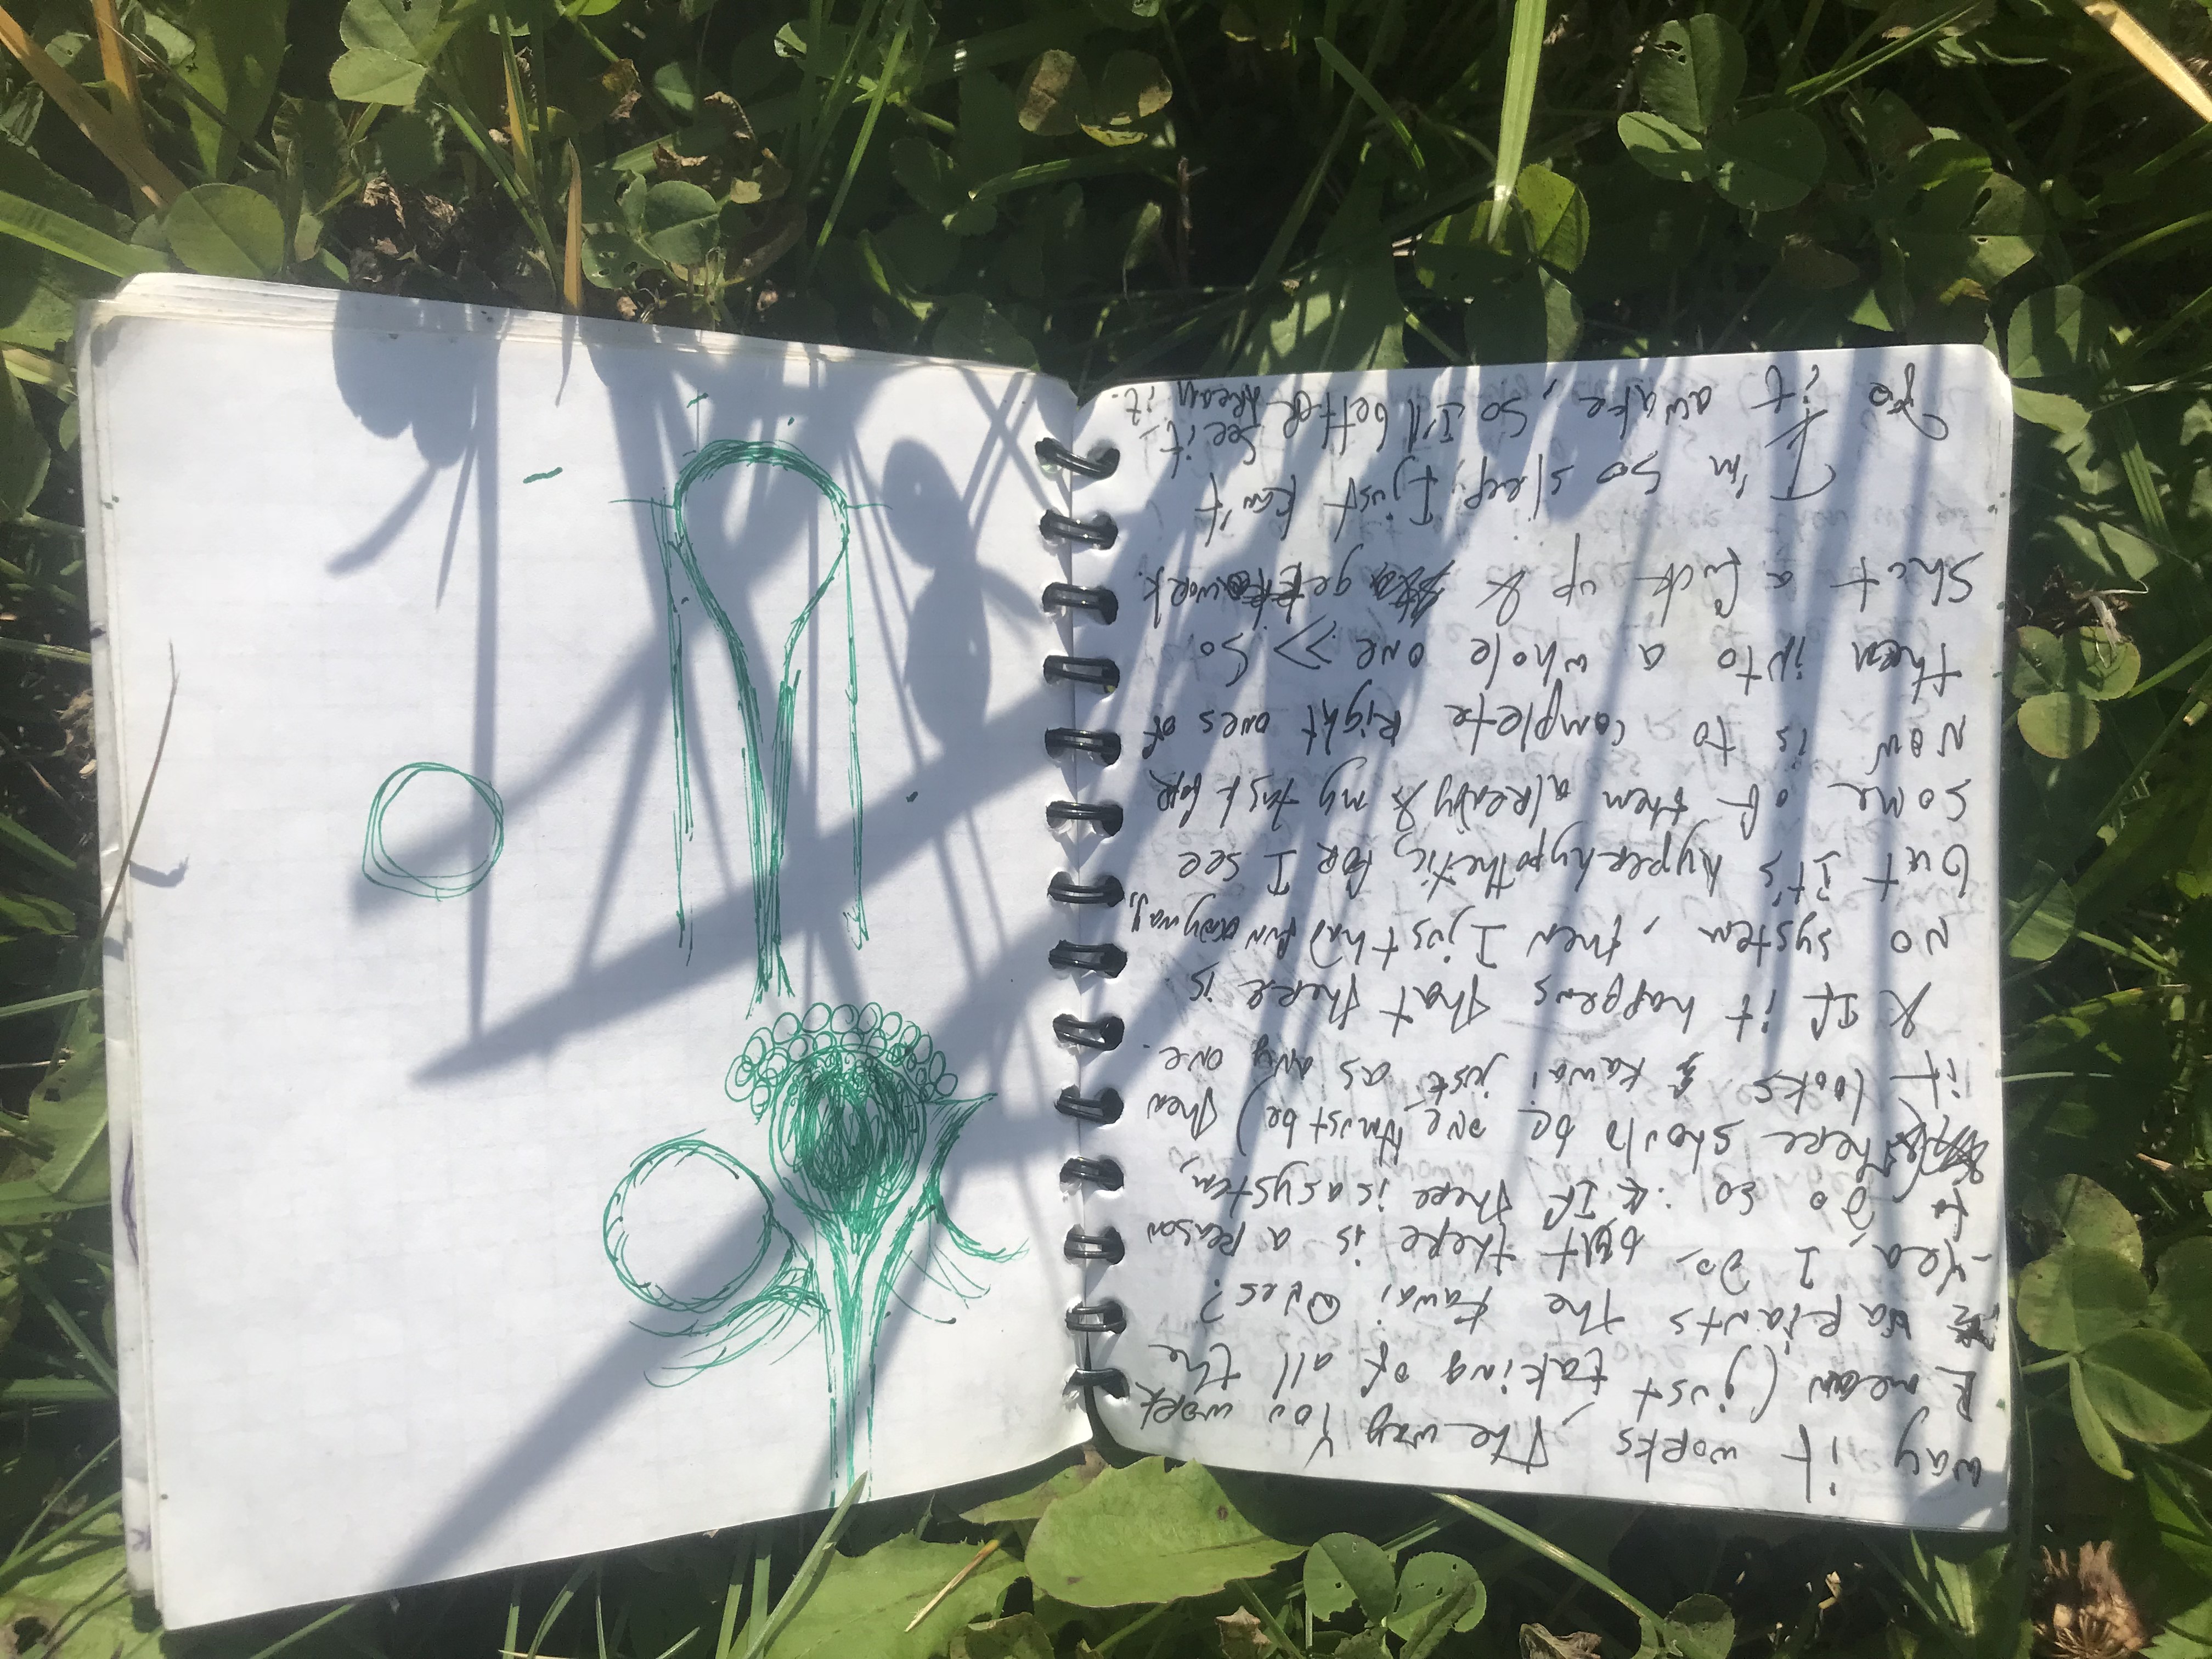 way it works, The way You work
I mean (just taking of all the
variants the Kawai Ones?
-Yea, I do, but there is a reason
to do so :« If there is a system,
(there should be one, must be) then
it looks kawai just as any one.
& If it happens that there is
no system, then I just had fun anyways
but It's hyperhypothetic, for I see
some of them already & my task for
now is to complete right ones of
them into a whole one ». So
Shut a fuck up & get to work.
I'm so sleep, I just kan't
do it awake, so I'll better see it,
dream it.